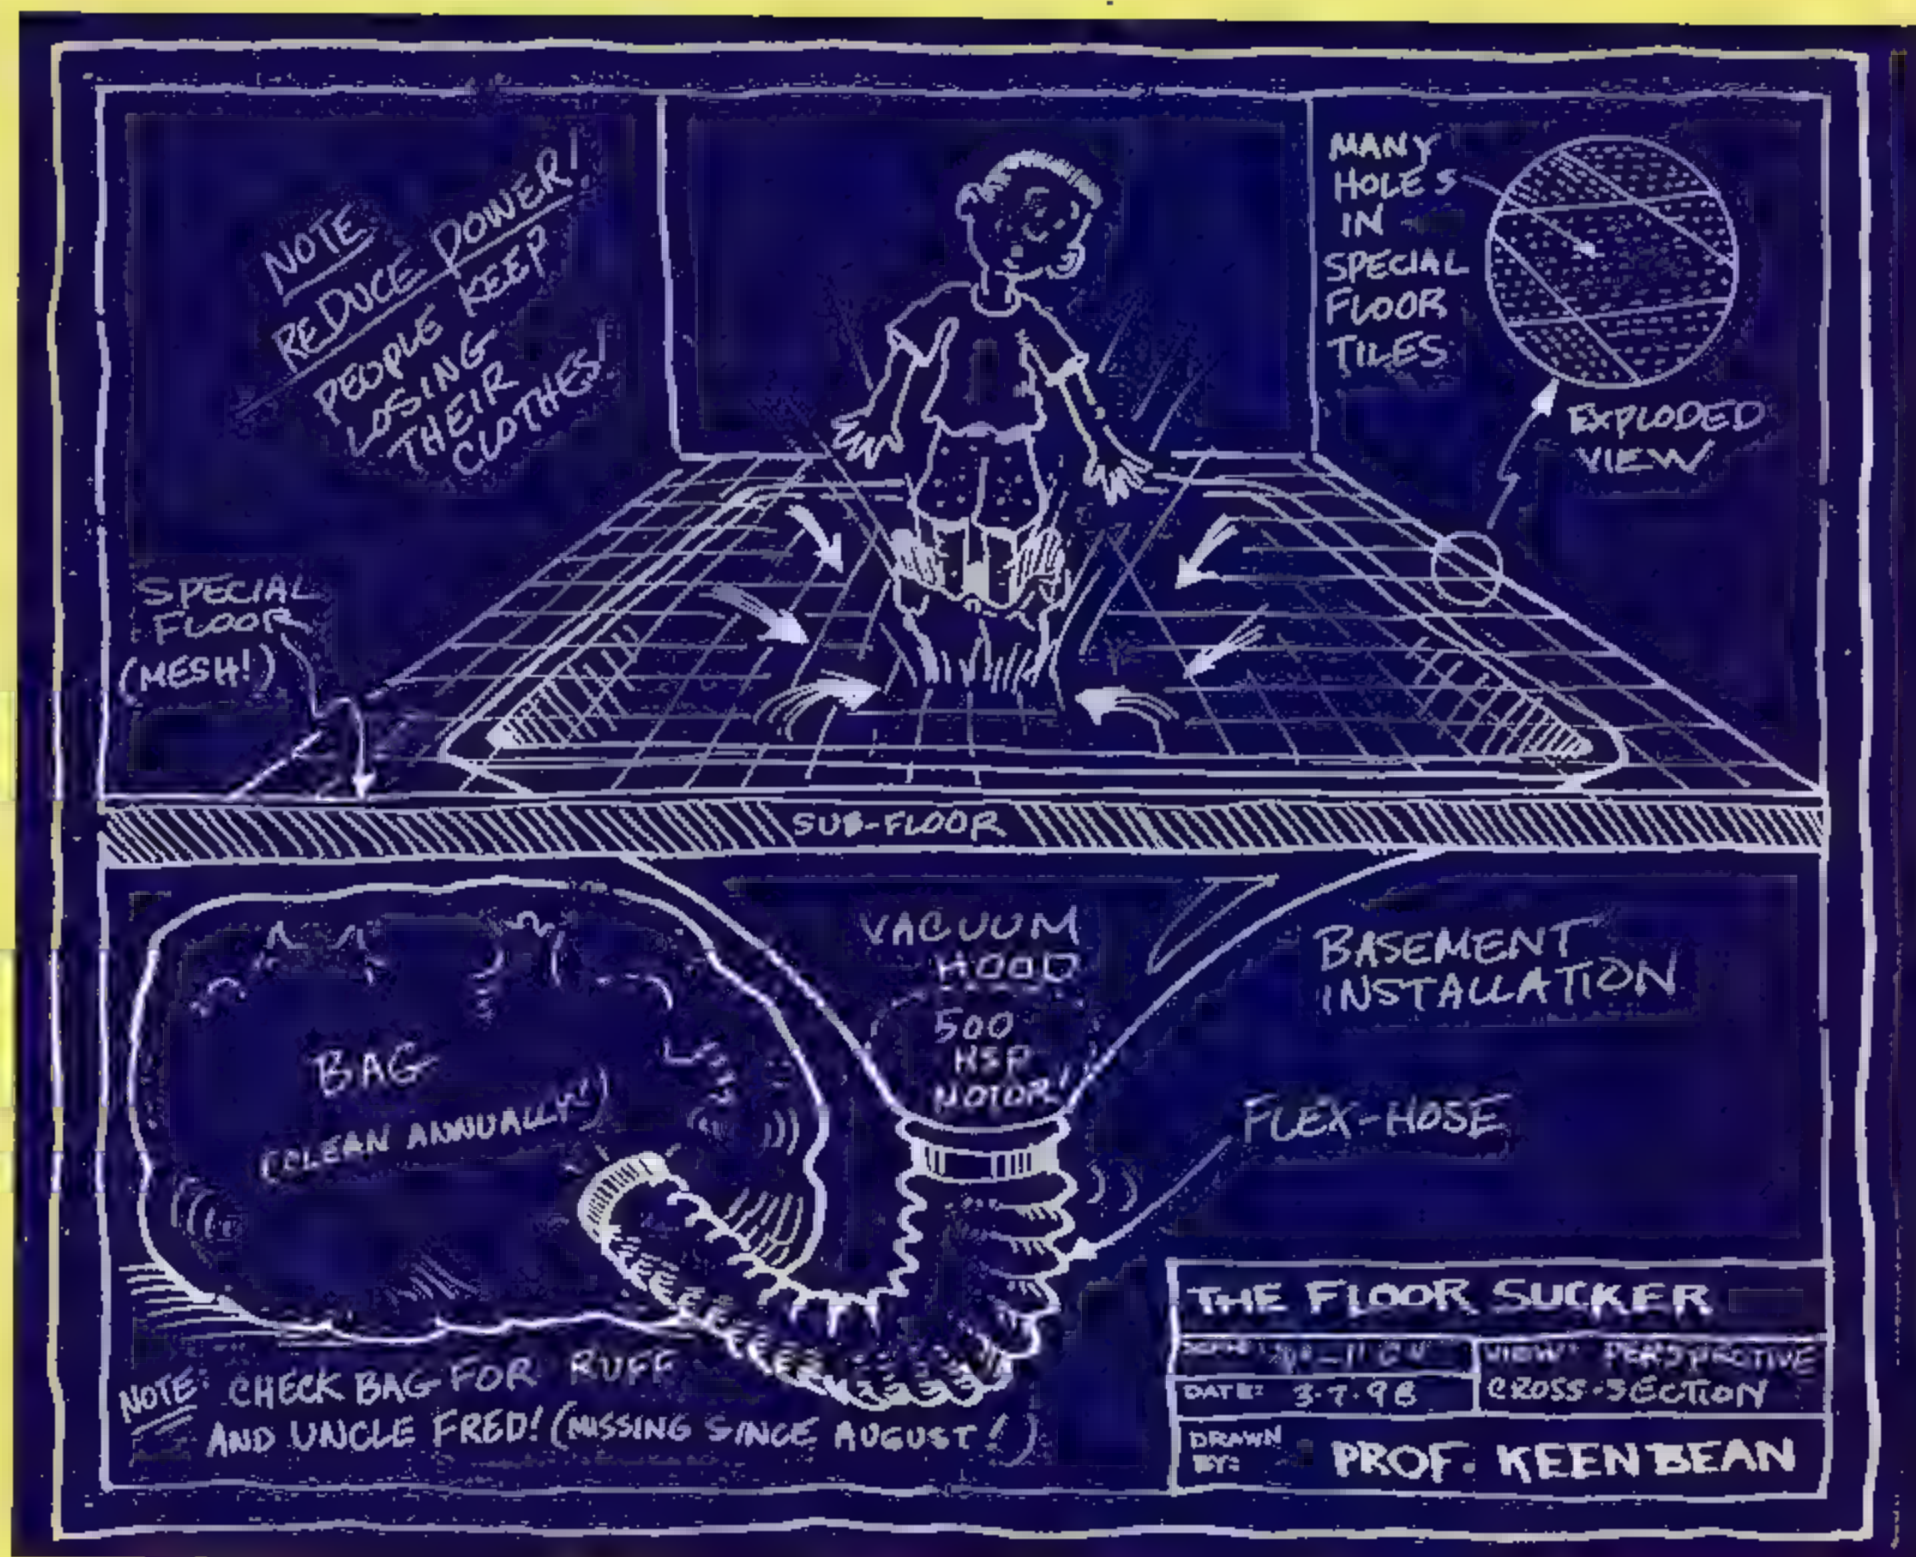 NOTE
REDUCE POWER!
PEOPLE KEEP
LOSING
THEIR
CLOTHES!
MANY
HOLES
IN
SPECIAL
FLOOR
TILES
EXPLODED
VIEW
SPECIAL
FLOOR
(MESH!)
SUB-FLOOR
VACUUM
HOOD
500
HSP
MOTOR!
BASEMENT
INSTALLATION
BAG
(CLEAN ANNUALLY!)
FLEX-HOSE
NOTE: CHECK BAG FOR RUFF
AND UNCLE FRED! (MISSING SINCE AUGUST!)
THE FLOOR SUCKER
VIEW: PERSPECTIVE
CROSS-SECTION
DATE: 3-7-98
DRAWN
BY: PROF. KEENBEAN